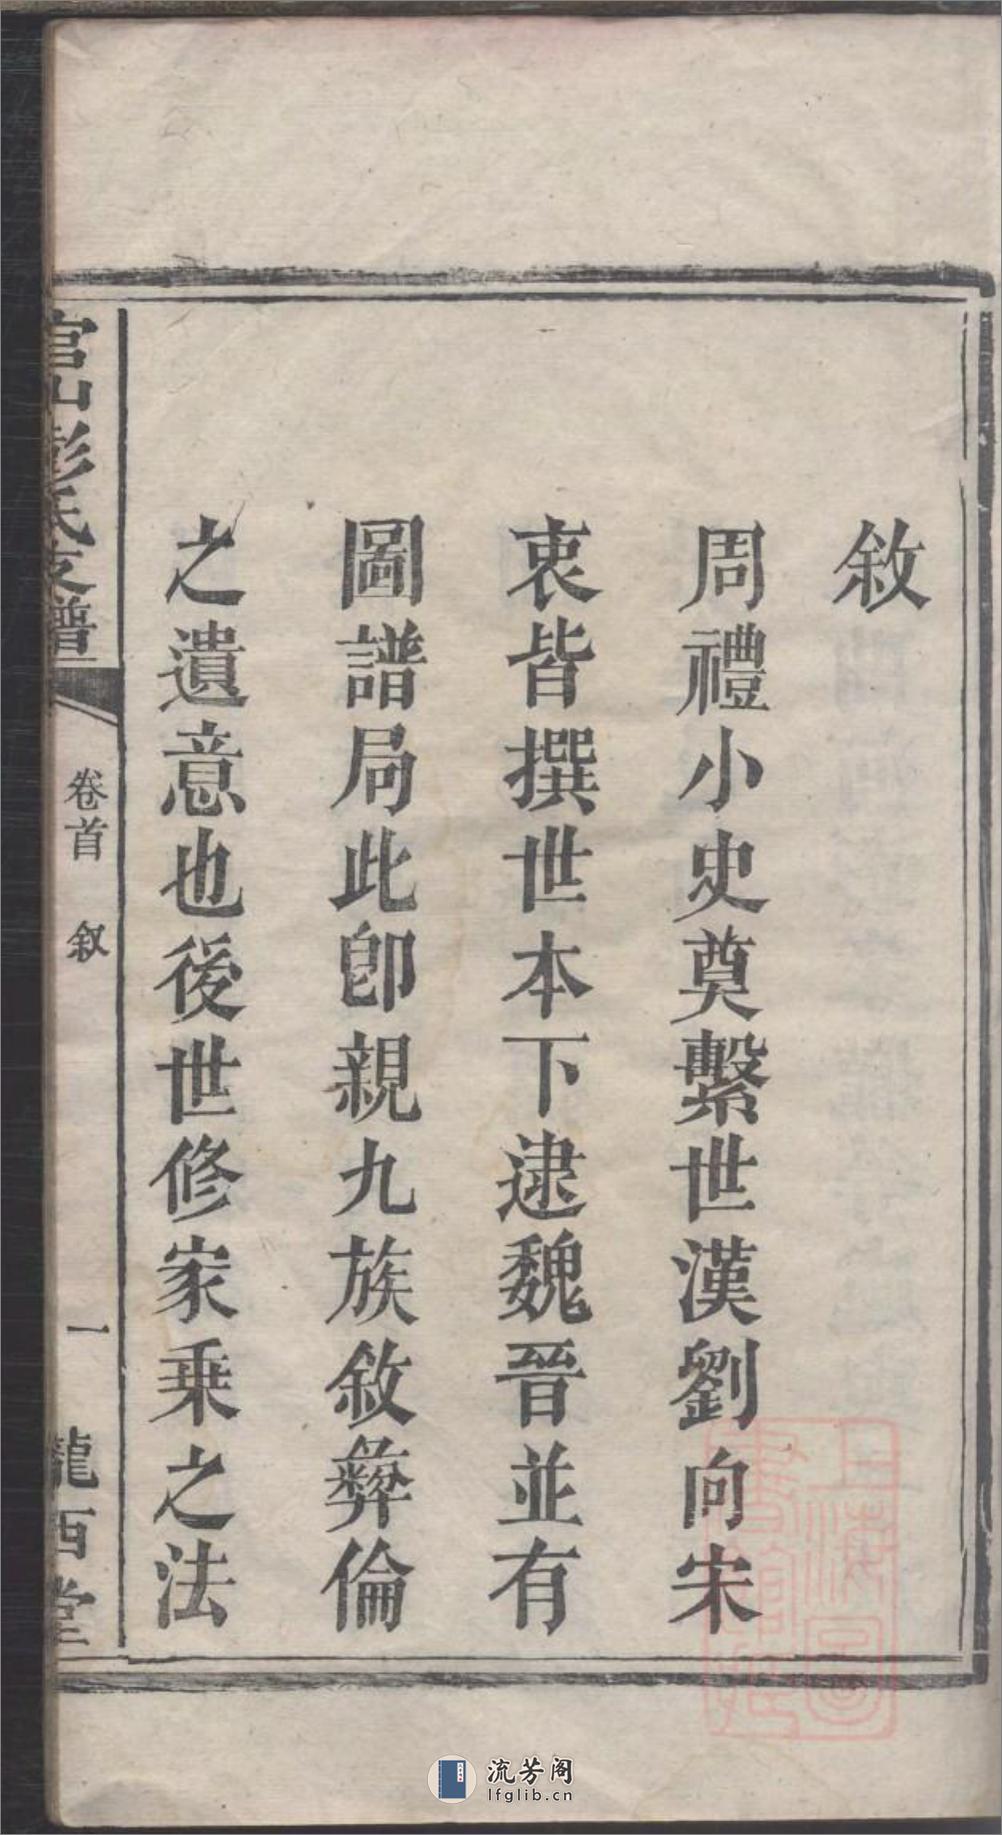 敘
周禮小史奠繫世漢劉向宋
衷皆撰世本下逮魏晉並有
圖譜局此卽親九族敘彝倫
之遺意也後世修家乘之法
官山彭氏支譜
卷首 叙
一
隴西堂
上海圖
書館藏
流芳阁
lfglib.cn